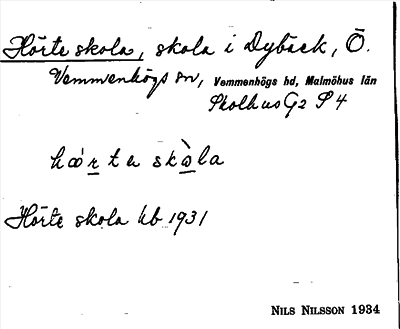 Hörte skola, skola i Dybäck, Ö.
Vemmenhögs sn, Vemmenhögs hd, Malmöhus län
Skolhus G2 S4
hœ́r̲ta skò̲la
Hörte skola kb 1931
NILS NILSSON 1934